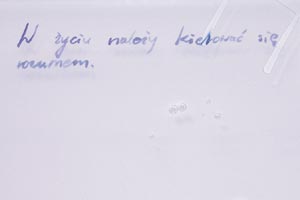 W życiu należy kierować się
rozumem.